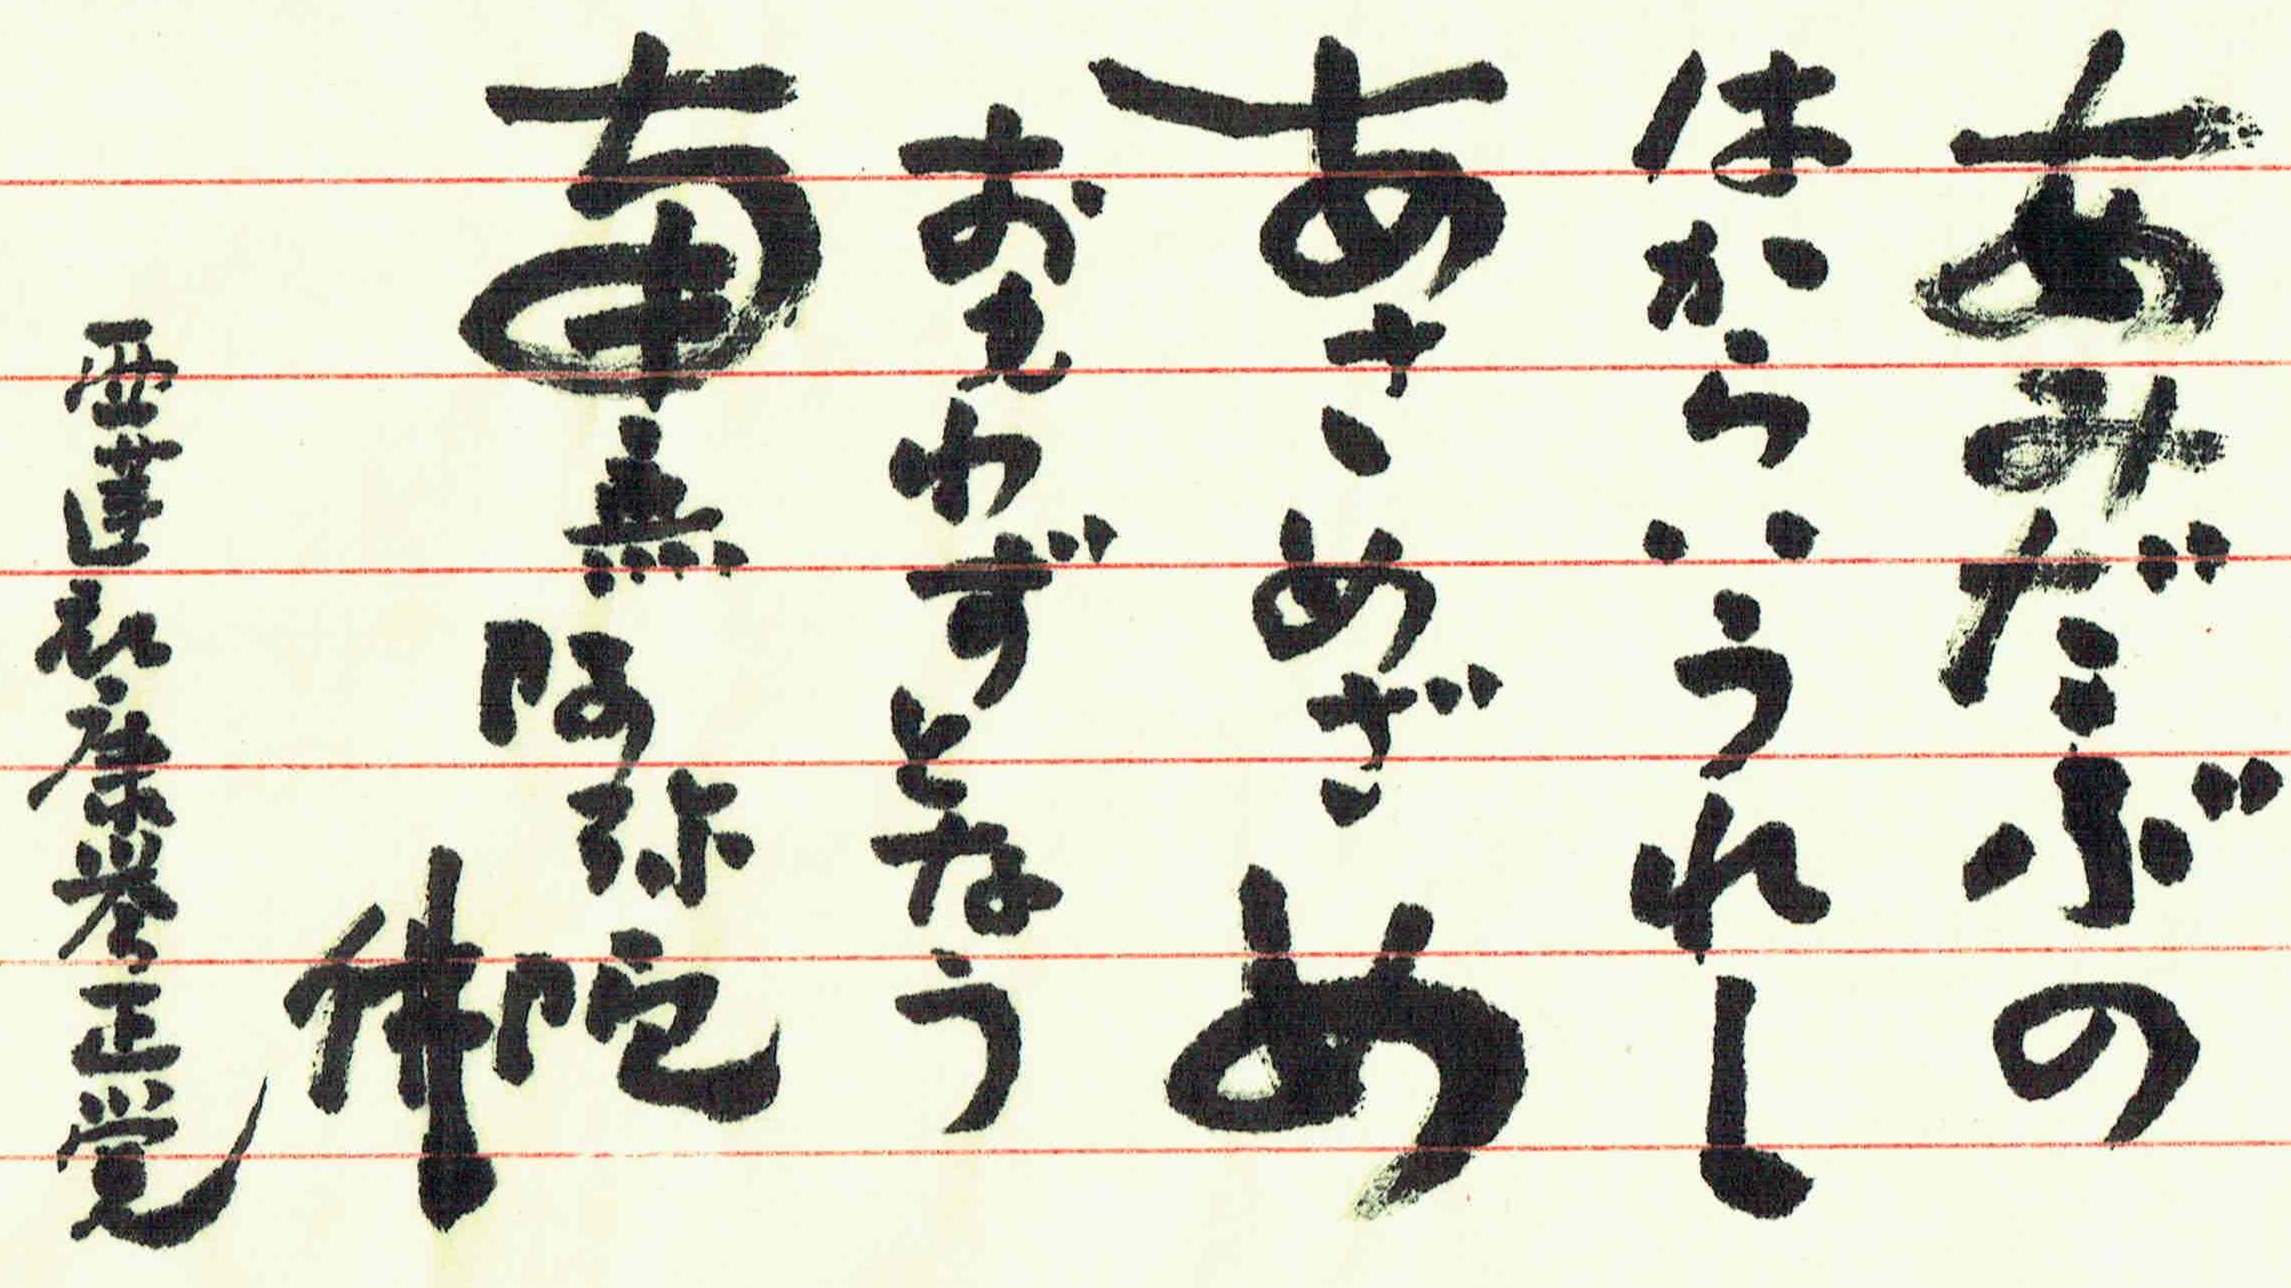 あみだぶの
はからいうれし
あさめざめ
おもわずとなう
南無阿弥陀
佛
亜蓮 康誉正覚